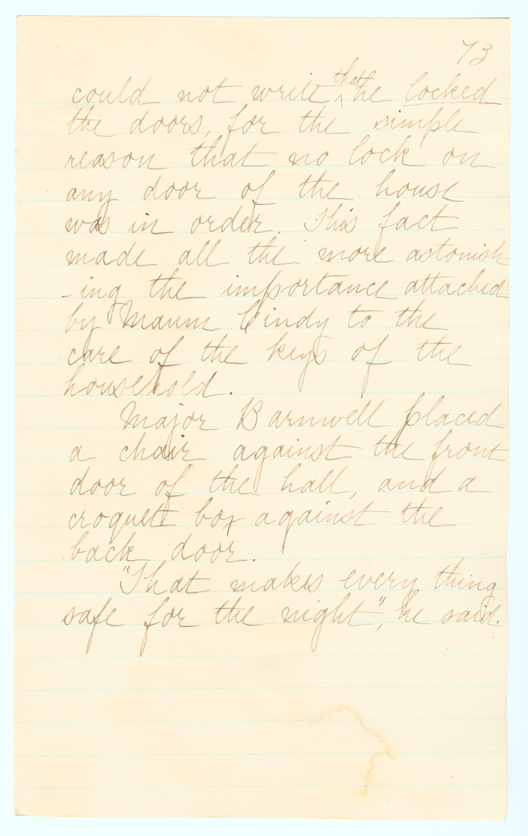 73
could not write that he locked
the doors, for the simple
reason that no lock on
any door of the house
was in order. This fact
made all the more astonish
-ing the importance attached
by Maum Cindy to the
care of the keys of the
household.
Major Barnwell placed
a chair against the front
door of the hall, and a
croquett box against the
back door.
"That makes every thing
safe for the night", he said.